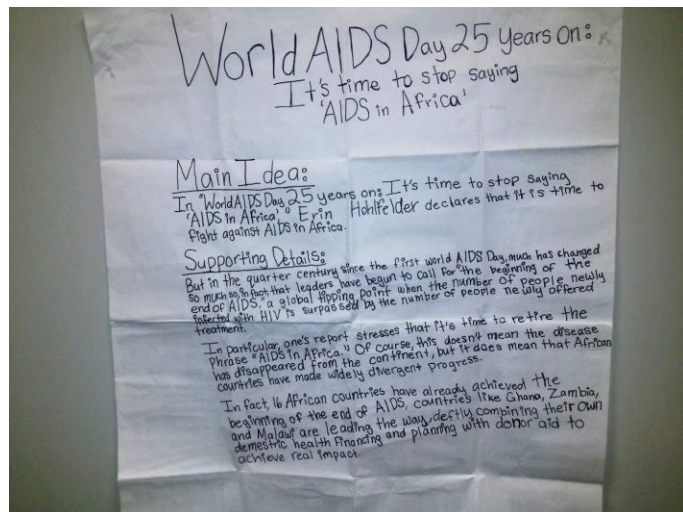 World AIDS Day 25 years on:
It's time to stop saying
'AIDS in Africa'
Main Idea:
In "World AIDS Day 25 years on: It's time to stop saying
'AIDS in Africa'" Erin Hohlfelder declares that it is time to
fight against AIDS in Africa.
Supporting Details:
But in the quarter century since the first world AIDS Day, much has changed
so much so, in fact that leaders have begun to call for "the beginning of the
end of AIDS, a global tipping point when the number of people newly
infected with HIV is surpassed by the number of people newly offered
treatment.
In particular, one's report stresses that it's time to retire the
phrase "AIDS in Africa." Of course, this doesn't mean the disease
has disappeared from the continent, but it does mean that African
countries have made widely divergent progress.
In fact, 16 African countries have already achieved the
beginning of the end of AIDS, countries like Ghana, Zambia,
and Malawi are leading the way, deftly combining their own
demestric health financing and planning with donor aid to
achieve real impact.